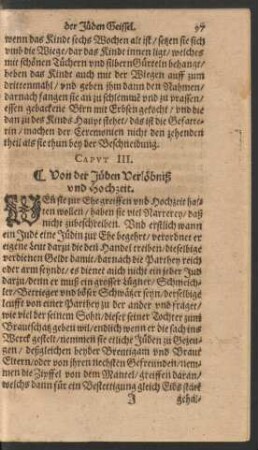 der Jüden Geissel. 97
wenn das Kinde sechs Wochen alt ist / setzen sie sich
vmb die Wiege / dar das Kinde innen ligt / welches
mit schönen Tüchern vnd silbern Gürteln behangẽ /
heben das Kinde auch mit der Wiegen auff zum
drittenmahl / vnd geben ihm dann den Nahmen /
darnach fangen sie an zu schlemmẽ vnd zu prassen /
essen gebackene Birn mit Erbsen gekocht / vnd die
dan zu des Kinds Haupt stehet / das ist die Gefatte-
rin / machen der Ceremonien nicht den zehenden
theil als sie thun bey der Beschneidung.
CAPVT III.
Von der Jüden Verlöbniß
vnd Hochzeit.
WEñ sie zur Ehe greiffen vnd Hochzeit hal-
ten wollen / haben sie viel Narrerey / daß
nicht zubeschreiben. Vnd erstlich wann
ein Jude eine Jüdin zur Ehe begehrt / verordnet er
eigene Leut darzu die den Handel treiben / dieselbige
verdienen Geldt damit / darnach die Parthey reich
oder arm seyndt / es dienet auch nicht ein jeder Jud
darzu / denn er muß ein grosser lügner / Schmeich-
ler / Betrieger vnd böser Schwätzer seyn / derselbige
leufft von einer Parthey zu der ander vnd fräget /
wie viel der seinem Sohn / dieser seiner Tochter zum
Brautschatz geben wil / endlich wenn er die sach ins
Werck gestelt / nemmen sie etliche Jüden zu Gezeu-
gen / deßgleichen beyder Breutigam vnd Braut
Eltern / oder von ihren nechsten Gefreunden / nem-
men die Zipffel von dem Mantel / greiffen daran /
welchs dann für ein Bestettigung gleich Eids stark
J gehal-